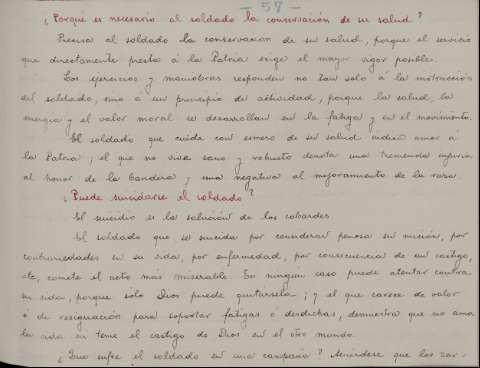 - 58 -
¿Porqué es necesario al soldado la conservación de su salud?
Precisa al soldado la conservación de su salud, porque el servicio
que directamente presta á la Patria exige el mayor vigor posible.
Los ejercicios y maniobras responden no tan solo á la instrucción
del soldado, sino á un principio de actividad, porque la salud, la
energia y el valor moral se desarrollan en la fatiga y en el movimiento.
El soldado que cuida con esmero de su salud indica amor á
la Patria; el que no vive sano y robusto denota una tremenda injuria
al honor de la bandera y una negativa al mejoramiento de la raza.
¿Puede suicidarse el soldado?
El suicidio es la solución de los cobardes.
El soldado que se suicida por considerar penosa su misión, por
contrariedades en su vida, por enfermedad, por consecuencia de un castigo,
etc, comete el acto más miserable. En ningún caso puede atentar contra
su vida, porque sólo Dios puede quitársela; y el que carece de valor
ó de resignación para soportar fatigas ó desdichas, demuestra que no ama
la vida ni teme el castigo de Dios en el otro mundo.
¿Que sufre el soldado en una campaña? que los